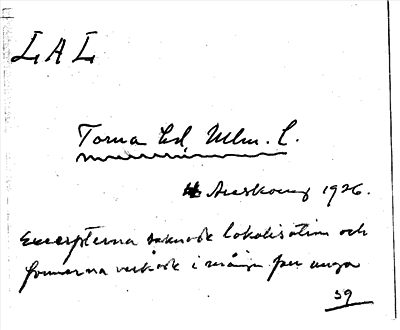 LAL
Torna hd, Mlm. l.
Areskoug 1926.
Excerpterna saknade lokalisation och
formerna verkade i många per unga
39